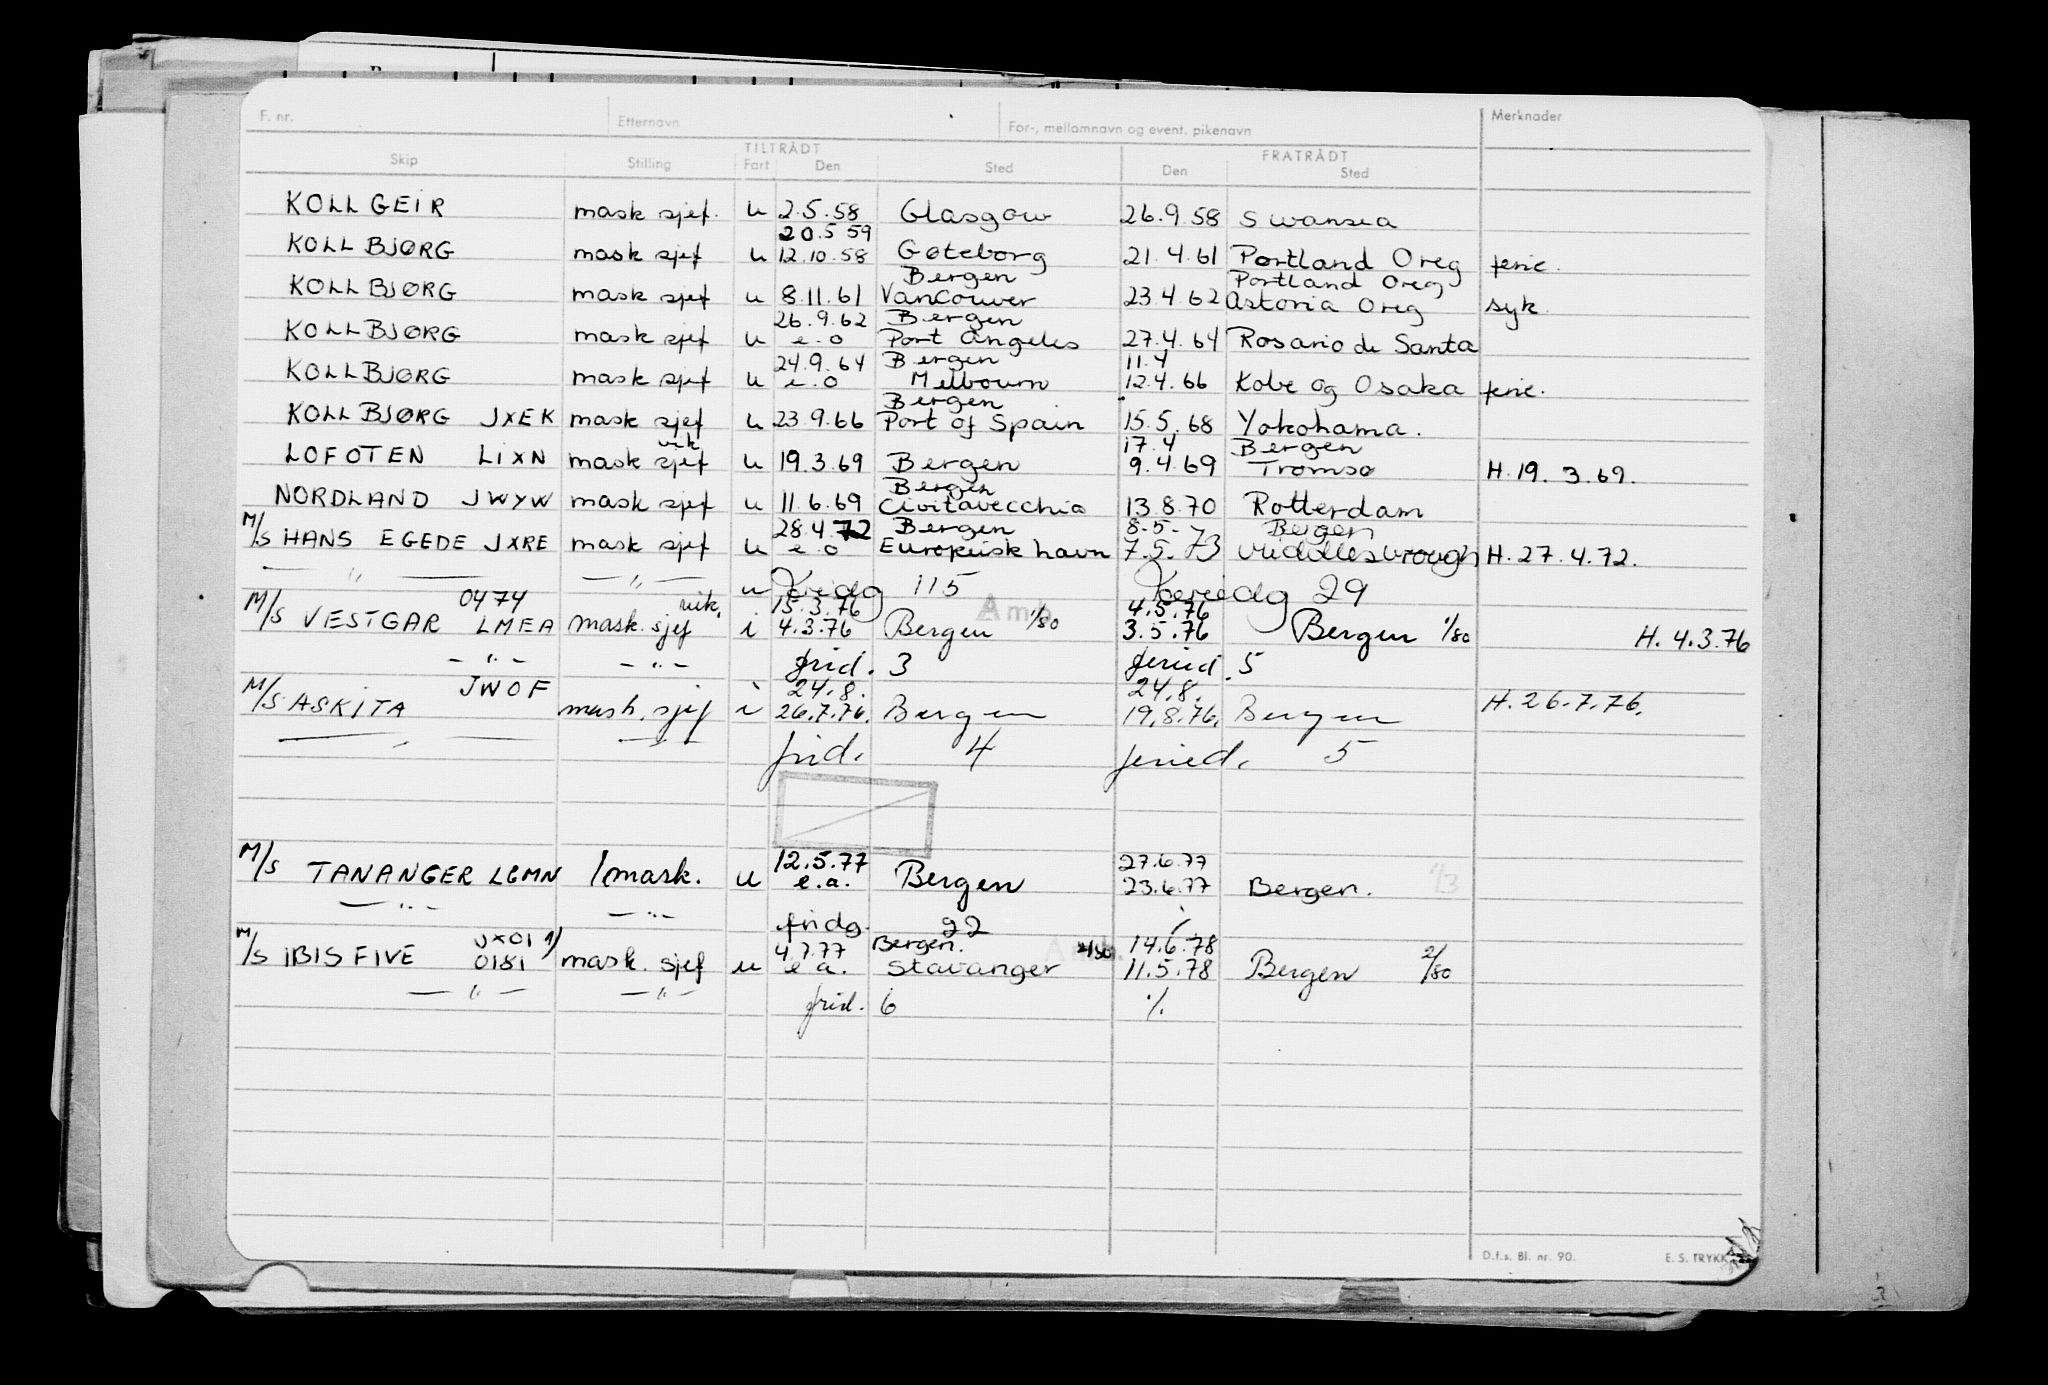 F. nr. Etternavn For-, mellomnavn og event. pikenavn Merknader
TILTRÅDT FRATRÅDT
Skip Stilling Fart Den Sted Den Sted
KOLLGEIR mask sjef. u 2.5.58 Glasgow 26.9.58 Swansea
20.5 59
KOLLBJØRG mask sjef u 12.10.58 Gøteborg 21.4.61 Portland Oreg ferie.
Bergen Portland Oreg
KOLLBJØRG mask sjef u 8.11.61 Vancouver 23.4.62 Astoria Oreg syk.
26.9.62 Bergen
KOLLBJØRG mask sjef u e.o Port Angeles 27.4.64 Rosario de Santa
24.9.64 Bergen 11.4
KOLLBJØRG mask sjef u e.o Melbourn 12.4.66 Kobe og Osaka ferie.
Bergen
KOLLBJØRG JXEK mask sjef u 23.9.66 Port of Spain 15.5.68 Yokohama.
vik 17.4 Bergen
LOFOTEN LIXN mask sjef u 19.3.69 Bergen 9.4.69 Tromsø H.19.3.69.
Bergen
NORDLAND JWYW mask sjef u 11.6.69 Civitavecchia 13.8.70 Rotterdam
28.4.72 Bergen 8.5.- Bergen
M/S HANS EGEDE JXRE mask sjef u e.o Europeisk havn 7.5.73 Middlesbrough H.27.4.72.
— " — — " — u fridg 115 feriedg 29
0474 vik. 15.3.76 Amb. 4.5.76
M/S VESTGAR LMEA mask. sjef i 4.3.76 Bergen 1/80 3.5.76 Bergen 1/80 H. 4.3.76
— " — — " — frid. 3 feried. 5
JWOF 24.8. 24.8.
M/S ASKITA mask. sjef i 26.7.76. Bergen 19.8.76. Bergen H.26.7.76.
— " — — " — frid. 4 feried. 5
12.5.77 27.6.77
M/S TANANGER LGMN 1mask. u e.a. Bergen 23.6.77 Bergen.
— " — — " — fridg. 22 %
JXOI 1) 4.7.77 Bergen. 14.6.78
M/S IBIS FIVE 0181 mask. sjef u e a. Stavanger 2/80 11.5.78 Bergen 2/80
— " — — " — frid. 6 %
D.f.s. Bl. nr. 90. E. S. TRYKK